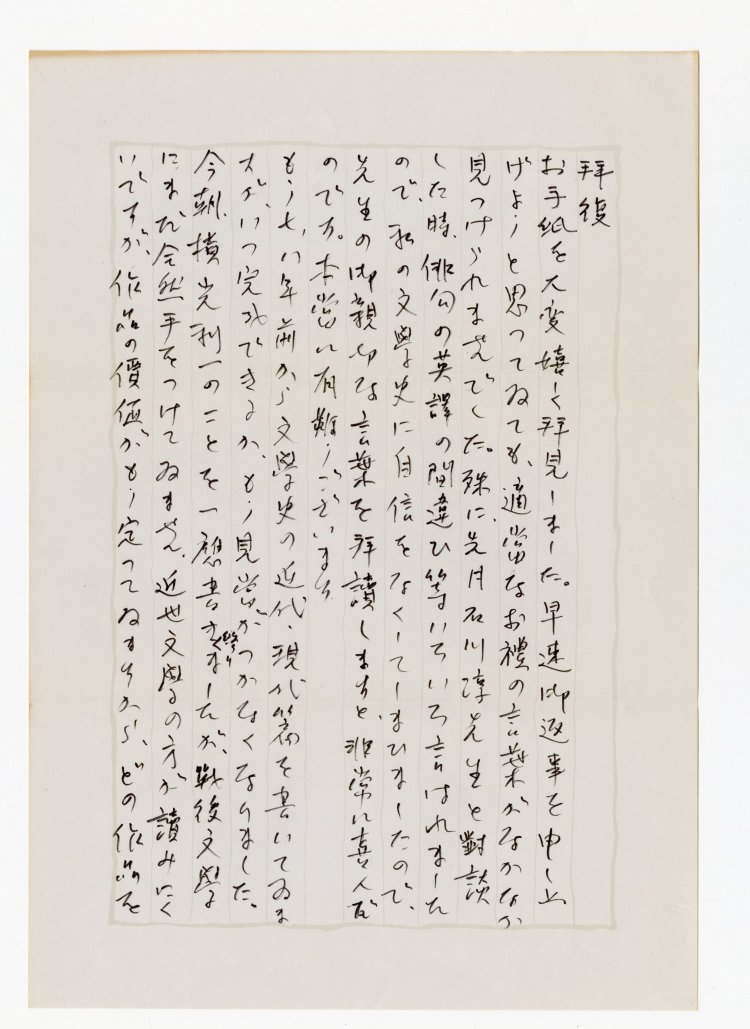 拝復
お手紙を大変嬉しく拝見しました。早速御返事を申し上
げようと思つてゐても、適當なお禮の言葉がなかなか
見つけられませんでした。殊に、先月石川淳先生と對談
した時、俳句の英譯の間違ひ等いろいろ言はれました
ので、私の文學史に自信をなくしてしまひましたので、
先生の御親切な言葉を拝讀しますと、非常に喜んだ
のです。本當に有難うございます
もう七、八年前から文學史の近代・現代篇を書いてゐま
すが、いつ完成できるか、もう見當がつかなくなりました。
今朝、横光利一のことを一應書き終りましたが、戰後文學
にまだ全然手をつけてゐません。近世文學の方が讀みにく
いですが、作品の價値がもう定つてゐますから、どの作品を